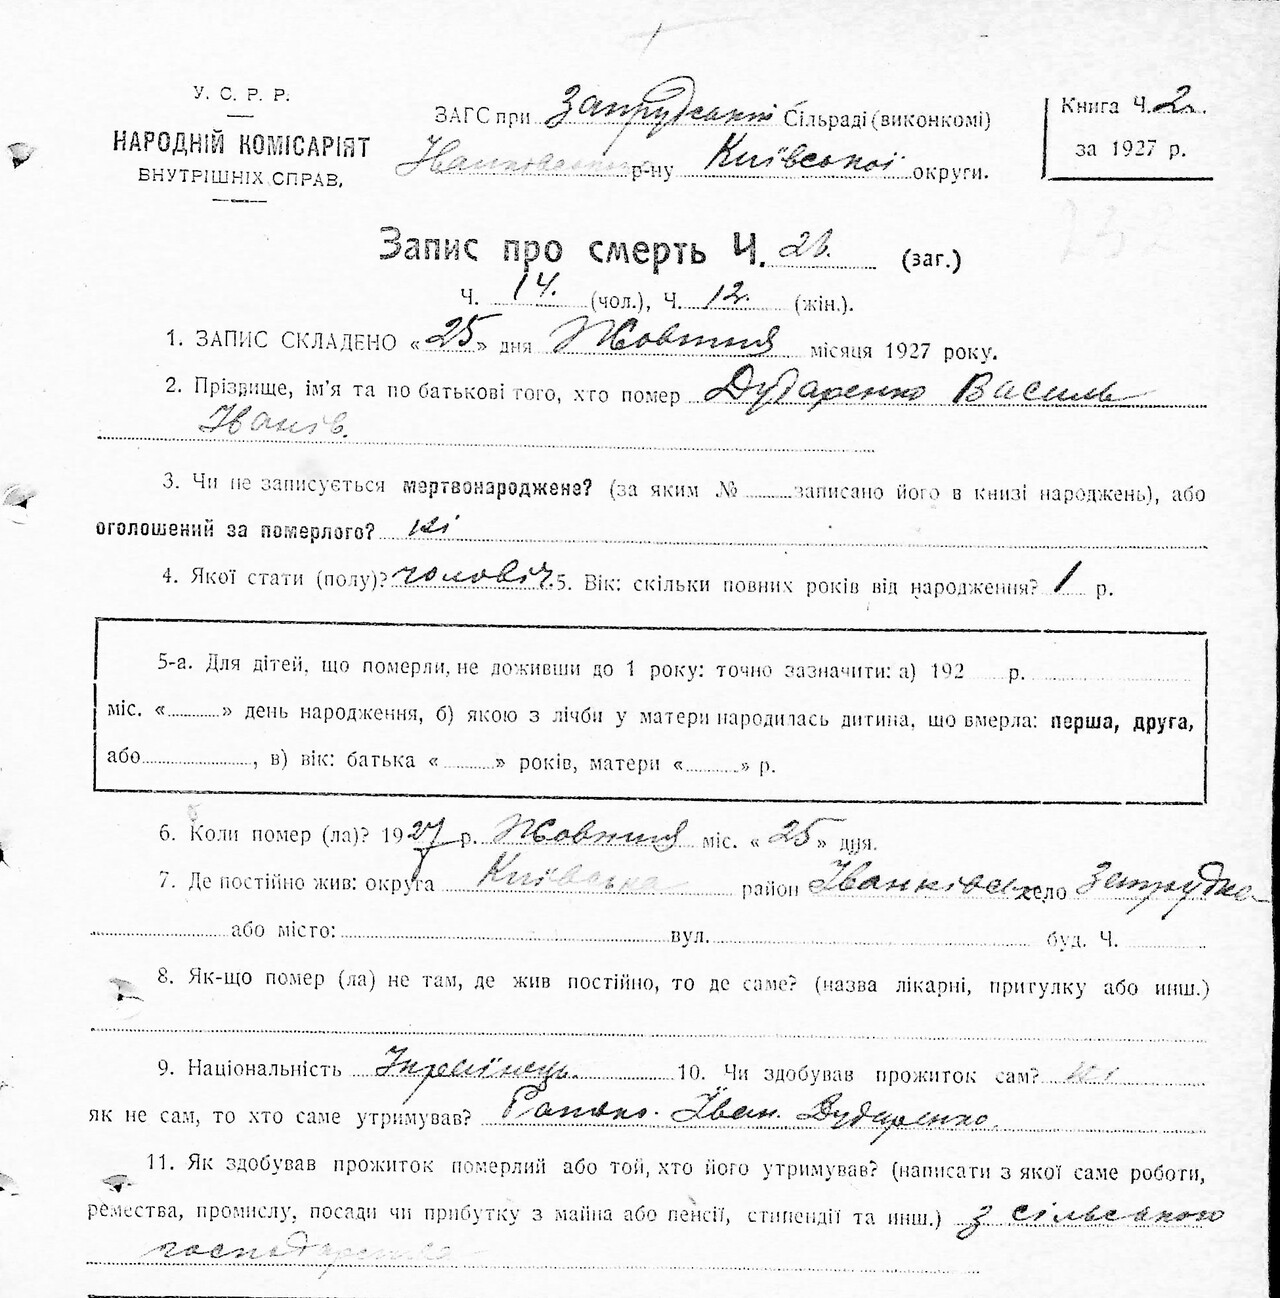 У. С. Р. Р.
НАРОДНІЙ КОМІСАРІЯТ
ВНУТРІШНІХ СПРАВ.
ЗАГС при Запрудській Сільраді (виконкомі)
Іванковського р-ну Київської округи.
Книга Ч. 2.
за 1927 р.
Запис про смерть Ч. 26. (заг.)
Ч. 14. (чол.), Ч. 12. (жін.).
1. ЗАПИС СКЛАДЕНО «25» дня Жовтня місяця 1927 року.
2. Прізвище, ім'я та по батькові того, хто помер Дударенко Василь
Іванів.
3. Чи не записується мертвонароджене? (за яким № записано його в книзі народжень), або
оголошений за померлого? ні
4. Якої стати (полу)? чоловіч. 5. Вік: скільки повних років від народження? 1 р.
5-а. Для дітей, що померли, не доживши до 1 року: точно зазначити: а) 192 р.
міс. « » день народження, б) якою з лічби у матери народилась дитина, що вмерла: перша, друга,
або , в) вік: батька « » років, матери « » р.
6. Коли помер (ла)? 1927 р. Жовтня міс. «25» дня.
7. Де постійно жив: округа Київська район Іванківськ село Запрудка
або місто: вул. буд. Ч.
8. Як-що помер (ла) не там, де жив постійно, то де саме? (назва лікарні, притулку або инш.)
9. Національність Украінець. 10. Чи здобував прожиток сам? ні
як не сам, то хто саме утримував? Іван Дударенко.
11. Як здобував прожиток померлий або той, хто його утримував? (написати з якої саме роботи,
ремества, промислу, посади чи прибутку з майна або пенсії, стипендії та инш.) з сільского
господарства